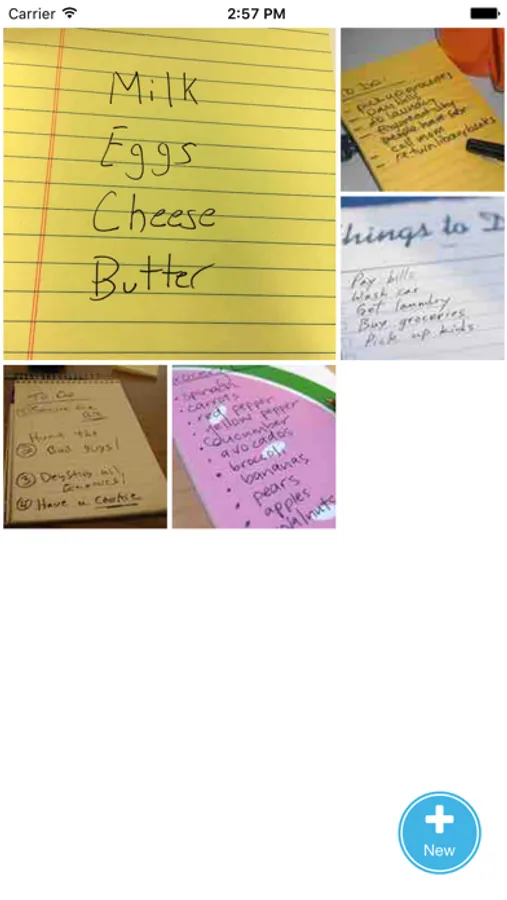 Carrier 2:57 PM
Milk
Eggs
Cheese
Butter
To Do
pick up groceries
pay bills
do laundry
call mom
return library books
Things to D
Pay bills
Wash car
Get laundry
Buy groceries
Pick up kids
To Do
①
Hunt the
② Bad guys!
③ Destroy all
④ Have a cookie
spinach
• carrots
• red pepper
• yellow pepper
• coucumber
• avocados
• broccoli
• bananas
• pears
• apples
walnuts
New